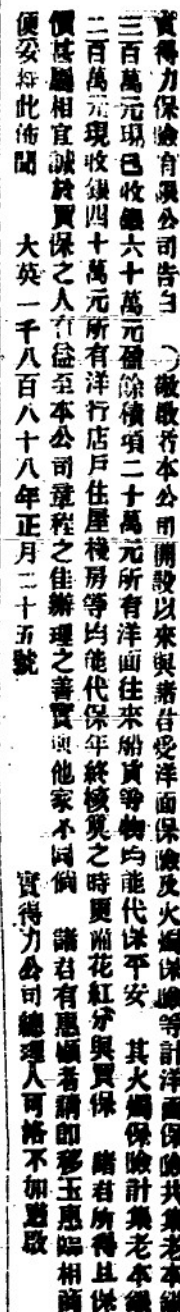 實得力保險有限公司告白　○敬啟者本公司開設以來與諸君受洋面保險及火燭保險等計洋面保險共集老本銀
三百萬元現已收銀六十萬元盈餘積項二十萬元所有洋面往來船貨等物均能代保平安　其火燭保險計集老本銀
二百萬元現收銀四十萬元所有洋行店戶住屋棧房等均能代保年終核算之時更派花紅分與買保　諸君所得且保
價甚廉相宜誠於買保之人有益至本公司章程之佳辦理之善實與他家不同倘　諸君有惠顧者請即移玉惠臨相商
便妥特此佈聞　　大英一千八百八十八年正月二十五號　　　　實得力公司總理人可格不加啟